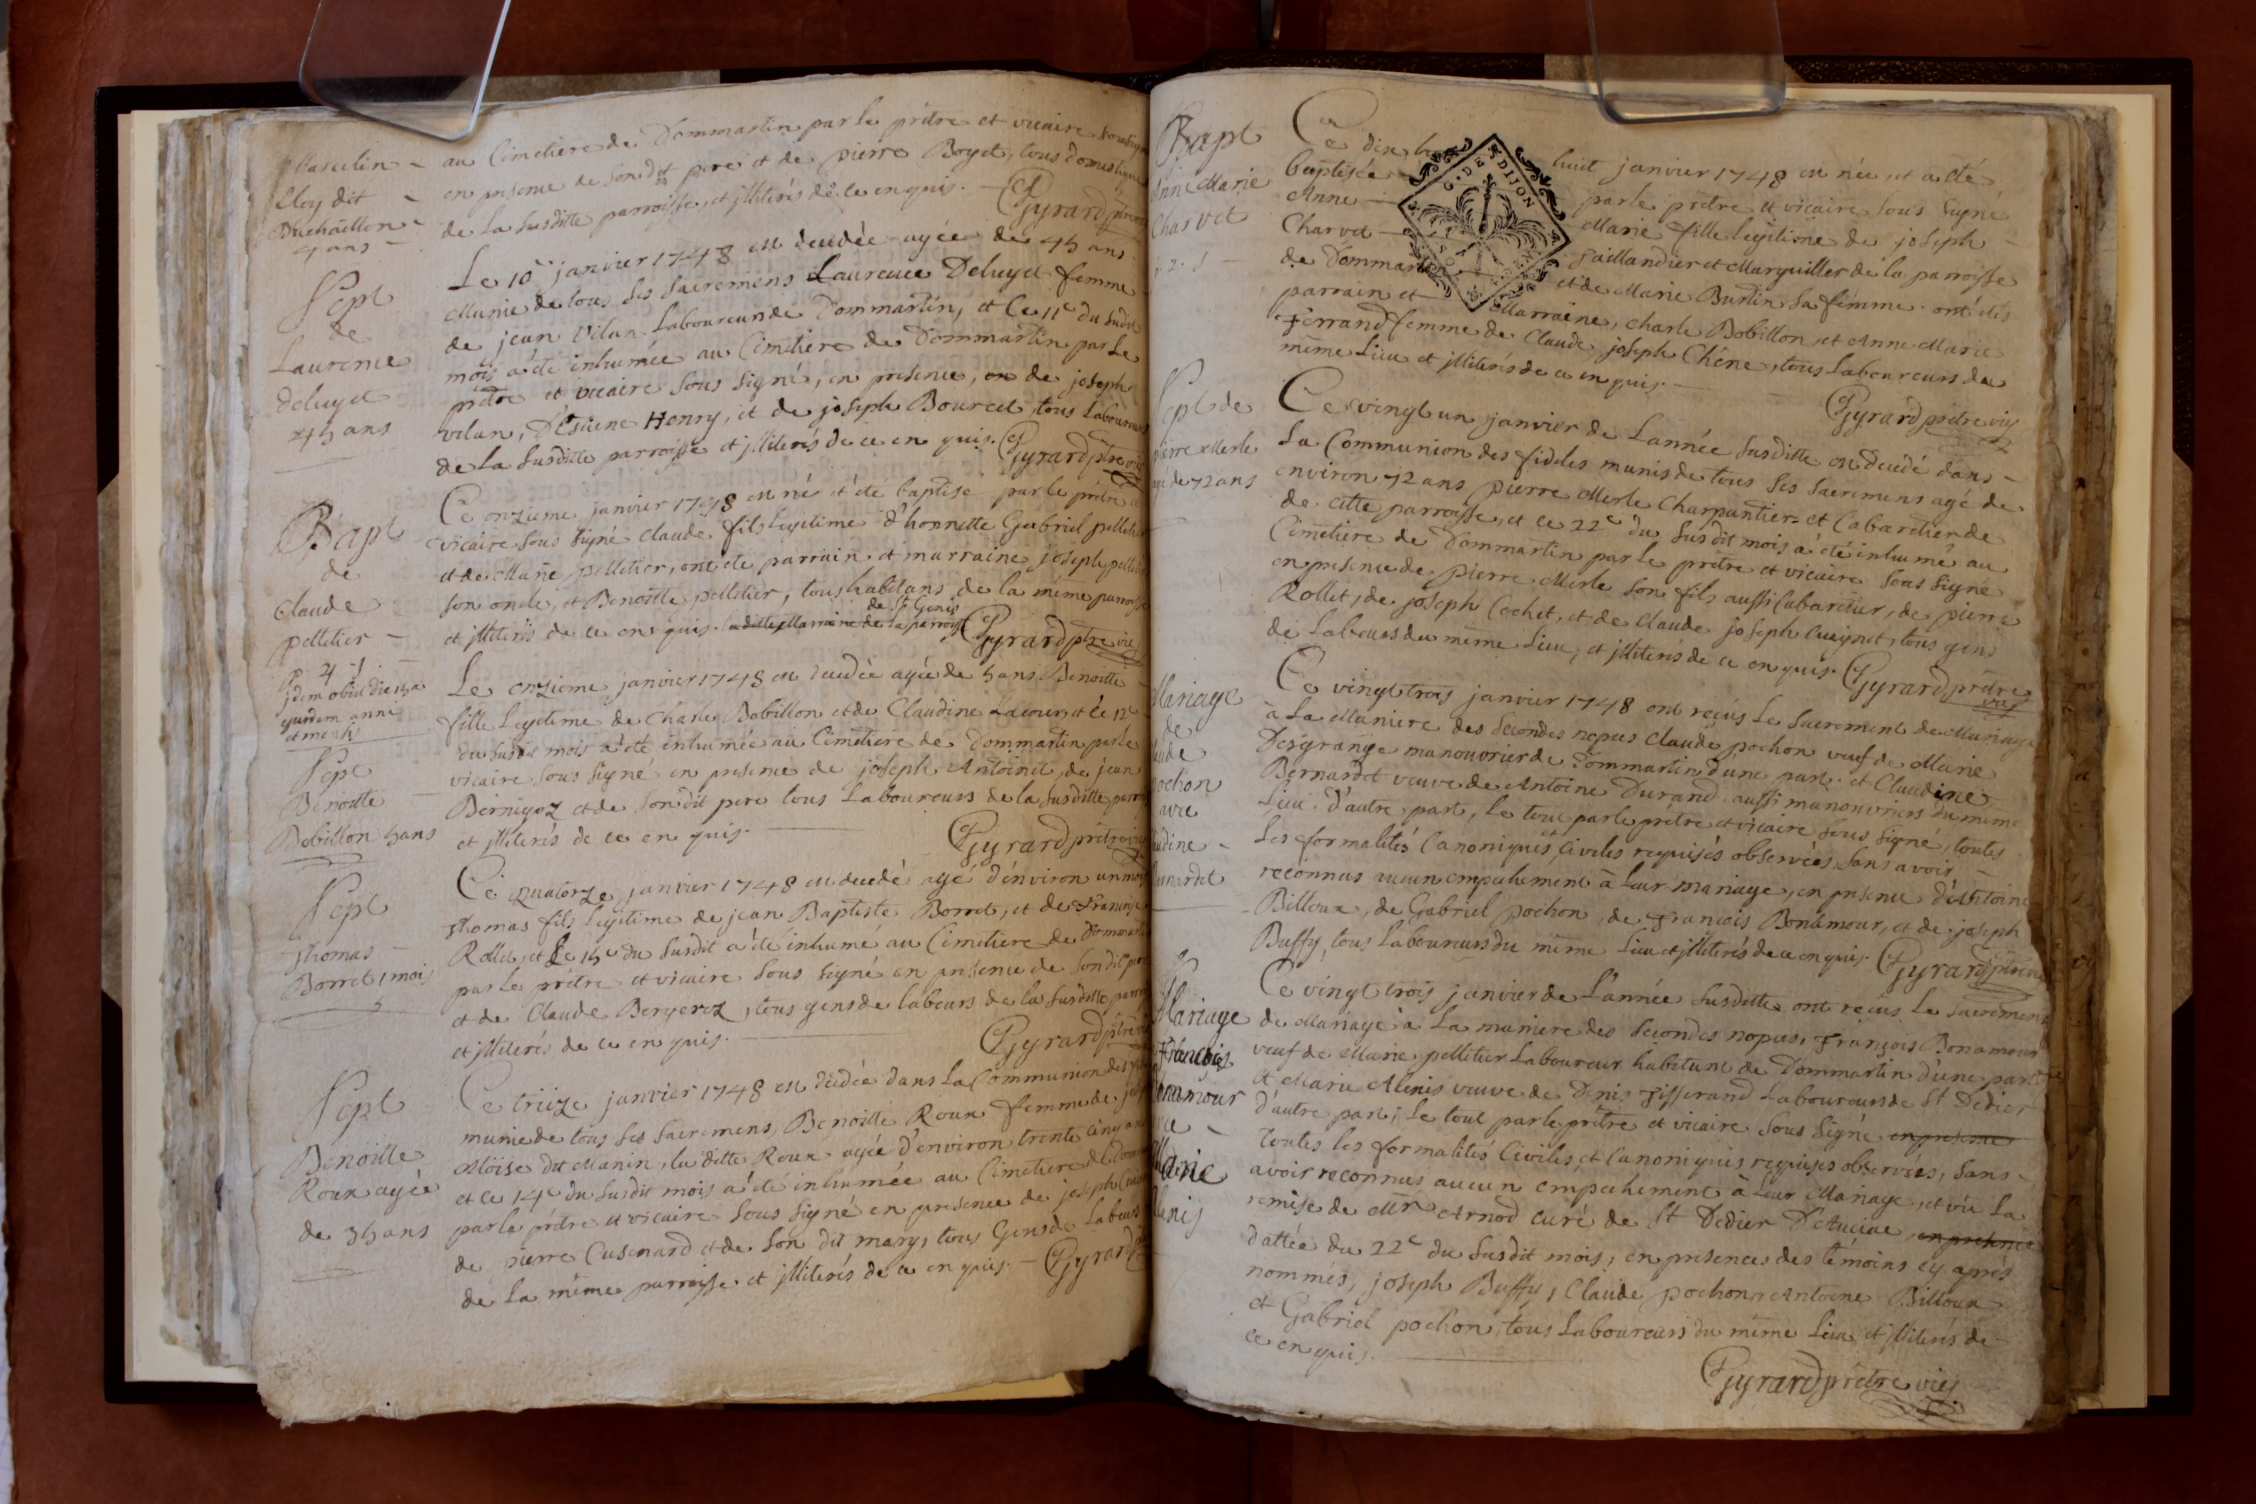 Marcelin
Eloy dit
Duchaillon
4 ans
au Cimetiere de Dommartin par le prêtre et vicaire
en presence de son dit pere et de pierre Boyet, tous domestiques
de la susditte parroisse, et jlliterés de ce enquis. Gyrard
Sept
de
Laurence
Deluyet
45 ans
Le 10e janvier 1748 est decedée agée de 45 ans
Munie de tous ses sacremens Laurence Deluyet femme
de jean Vilan Laboureur de Dommartin, et le 11e du susdit
mois a été inhumée au Cimetiere de Dommartin par le
prêtre et vicaire sous signé, en presence, de joseph
vilan, D'Estiene Henry, et de joseph Bourcet tous Laboureurs
de la susditte parroisse et jlliterés de ce en quis. Gyrard ptre vic
Bapt
de
Claude
pelletier
Ce onzieme janvier 1748 est né et été baptisé par le prêtre et
vicaire sous signé Claude fils legitime d'honnette Gabriel pelletier
et de Marie pelletier, ont été parrain et marraine joseph pelletier
son oncle, et Benoitte pelletier, tous habitans de la même parroisse
de St Genis
et jlliterés de ce enquis. laditte Marraine de la parroisse Gyrard ptre vic
jdem obiit die 15a
ejusdem anni
et mensis
Sept
Benoitte
Bobillon 5 ans
Le onzieme janvier 1748 est decedée agée de 5 ans Benoitte
fille Legitime de Charle Bobillon et de Claudine Lacour, et le 12e
du susdit mois a été inhumée au Cimetiere de Dommartin par le
vicaire sous signé en presence de joseph Antoinet, de jean
Bernigoz et de son dit pere tous Laboureurs de la susditte parroisse
et jlliterés de ce en quis. Gyrard prêtre vic
Sept
Thomas
Borret 1 mois
Ce quatorze janvier 1748 est decedé agé d'environ un mois
Thomas fils legitime de jean Baptiste Borret, et de Françoise
Rollet, et Le 15e du susdit a été inhumé au Cimetiere de Dommartin
par le prêtre et vicaire sous signé en presence de son dit pere
et de Claude Bergeroz, tous gens de labeurs de la susditte parroisse
et jlliterés de ce en quis. Gyrard ptre vic
Sept
Benoitte
Roux agée
de 35 ans
Ce treize janvier 1748 est decedée dans la Communion des
munie de tous ses sacremens, Benoitte Roux femme de
Moïse dit Manin, la ditte Roux agée d'environ trente cinq ans
et ce 14e du susdit mois a été inhumée au Cimetiere de
par le prêtre et vicaire sous signé en presence de joseph
de pierre Cusinard et de son dit mary, tous Gens de Labeurs
de la même parroisse et jlliterés de ce en quis. Gyrard
Bapt
Anne Marie
Charvet
G. DE DIJON
Ce dix huit janvier 1748 est née, et a été
baptisée par le prêtre et vicaire sous signé
Anne Marie fille legitime de joseph
Charvet Taillandier et Marguiller de la parroisse
de Dommartin et de Marie Burtin sa femme. ont étés
parrain et Marraine, Charle Bobillon et Anne Marie
Ferrand femme de Claude joseph Chêne, tous Laboureurs du
même Lieu et jlliterés de ce en quis. Gyrard prêtre vic
Sept de
pierre Merle
agé de 72 ans
Ce vingt un janvier de L'année susditte est decedé dans
La Communion des fideles munis de tous ses sacremens agé de
environ 72 ans pierre Merle Charpantier et Cabaretier de
de cette parroisse, et ce 22e du susdit mois a été inhumé au
Cimetiere de Dommartin par le prêtre et vicaire sous signé
en presence de pierre Merle son fils aussi Cabaretier, de pierre
Rollet, de joseph Cochet, et de Claude joseph Cuzignet, tous gens
de Labeurs du même Lieu, et jlliterés de ce en quis. Gyrard prêtre
vic
Mariage
de
Claude
pochon
avec
Claudine
Bernardet
Ce vingt trois janvier 1748 ont reçus Le sacrement de Mariage
à La Maniere des secondes nopces Claude pochon veuf de Marie
Desgrange manouvrier de Dommartin d'une part, et Claudine
Bernardet veuve de Antoine Durand aussi manouvriers du même
Lieu d'autre part, Le tout par le prêtre et vicaire sous signé, toutes
Les formalités Canoniques et Civiles requises observées sans avoir
reconnus aucun empechement à Leur mariage, en presence d'Antoine
Billoux, de Gabriel pochon, de François Bonamour, et de joseph
Buffy, tous Laboureurs du même Lieu et jlliterés de ce en quis. Gyrard ptre vic
Mariage
François
Bonamour
Marie
Alenis
Ce vingt trois janvier de L'année susditte ont reçus Le Sacrement
de Mariage à La maniere des secondes nopces, François Bonamour
veuf de Marie pelletier Laboureur habitant de Dommartin d'une part
et Marie Alenis veuve de Denis Tisserand Laboureurs de St Dedier
d'autre part, Le tout par le prêtre et vicaire sous signé en presence
toutes les formalités Civiles et Canoniques requises observées, sans
avoir reconnus aucun empechement à Leur Mariage, et vû La
remise de Mr Arnod curé de St Dedier D'Auciae en presence
dattée du 22e du susdit mois, en presences des témoins cy après
nommés, joseph Buffy, Claude pochon, Antoine Billoux
et Gabriel pochon, tous Laboureurs du même Lieu et jlliterés de
ce en quis.
Gyrard prêtre vic